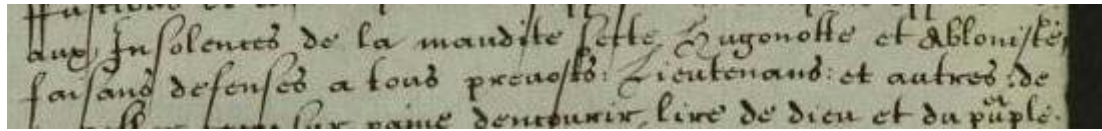 aux Insolences de la maudite sette Hugonotte et Abloniste,
faisans defenses a tous prevosts: Lieutenans: et autres: de
sur paine dencourir lire de dieu et du puple.